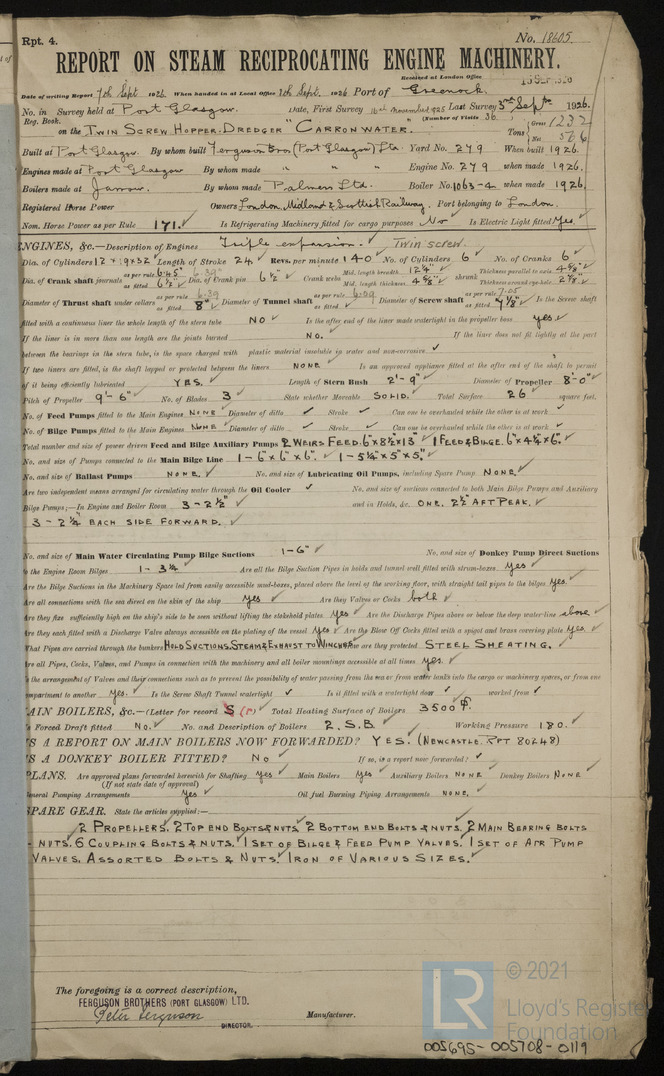 Rpt. 4. No. 18605
REPORT ON STEAM RECIPROCATING ENGINE MACHINERY.
Received at London Office
Date of writing Report 7th Sept 1926 When handed in at Local Office 1926 Port of Greenock.
No. in Survey held at Port Glasgow. Date, First Survey 16th November 1925 Last Survey 3rd Sept. 1926.
Reg. Book. (Number of Visits 36.)
on the TWIN SCREW HOPPER DREDGER "CARRONWATER." Tons Gross 1232 Net 506
Built at Port Glasgow. By whom built Ferguson Bros (Port Glasgow) Ltd. Yard No. 279 When built 1926.
Engines made at Port Glasgow By whom made " " " Engine No. 279 when made 1926.
Boilers made at Jarrow. By whom made Palmers Ltd. Boiler No. 1063-4 when made 1926.
Registered Horse Power Owners London Midland & Scottish Railway. Port belonging to London.
Nom. Horse Power as per Rule 171. Is Refrigerating Machinery fitted for cargo purposes No Is Electric Light fitted Yes.
ENGINES, &c.—Description of Engines Triple expansion. Twin screw.
Dia. of Cylinders 12 x 19 x 32 Length of Stroke 24 Revs. per minute 140 No. of Cylinders 6 No. of Cranks 6
Dia. of Crank shaft journals as per rule as fitted 6½" Dia. of Crank pin 6½" Crank webs Mid. length breadth 12¼" Mid. length thickness 4⅝" shrunk Thickness parallel to axis 4⅝" Thickness around eye-hole 2⅞"
Diameter of Thrust shaft under collars as per rule 6.39 as fitted 8" Diameter of Tunnel shaft as per rule as fitted Diameter of Screw shaft as per rule 7.05 as fitted 7⅞" Is the Screw shaft
fitted with a continuous liner the whole length of the stern tube NO Is the after end of the liner made watertight in the propeller boss yes
If the liner is in more than one length are the joints burned NO. If the liner does not fit tightly at the part
between the bearings in the stern tube, is the space charged with plastic material insoluble in water and non-corrosive
If two liners are fitted, is the shaft lapped or protected between the liners NONE Is an approved appliance fitted at the after end of the shaft to permit
of it being efficiently lubricated YES. Length of Stern Bush 2'-9" Diameter of Propeller 8'-0"
Pitch of Propeller 9'-6" No. of Blades 3 State whether Moveable SOLID. Total Surface 26 square feet.
No. of Feed Pumps fitted to the Main Engines NONE Diameter of ditto Stroke Can one be overhauled while the other is at work
No. of Bilge Pumps fitted to the Main Engines NONE Diameter of ditto Stroke Can one be overhauled while the other is at work
Total number and size of power driven Feed and Bilge Auxiliary Pumps 2 WEIRS FEED. 6"x8½"x13" 1 FEED & BILGE. 6"x4¼"x6".
No. and size of Pumps connected to the Main Bilge Line 1-6"x6"x6". 1-5¼"x5"x5".
No. and size of Ballast Pumps NONE. No. and size of Lubricating Oil Pumps, including Spare Pump NONE.
Are two independent means arranged for circulating water through the Oil Cooler No. and size of suctions connected to both Main Bilge Pumps and Auxiliary
Bilge Pumps;—In Engine and Boiler Room 3-2½" and in Holds, &c. ONE. 2½" AFT PEAK.
3-2¼" EACH SIDE FORWARD.
No. and size of Main Water Circulating Pump Bilge Suctions 1-6" No. and size of Donkey Pump Direct Suctions
to the Engine Room Bilges 1-3¼ Are all the Bilge Suction Pipes in holds and tunnel well fitted with strum-boxes yes
Are the Bilge Suctions in the Machinery Space led from easily accessible mud-boxes, placed above the level of the working floor, with straight tail pipes to the bilges yes.
Are all connections with the sea direct on the skin of the ship yes Are they Valves or Cocks both
Are they fixed sufficiently high on the ship's side to be seen without lifting the stokehold plates yes Are the Discharge Pipes above or below the deep water-line above
Are they each fitted with a Discharge Valve always accessible on the plating of the vessel yes Are the Blow Off Cocks fitted with a spigot and brass covering plate yes
What Pipes are carried through the bunkers HOLD SUCTIONS, STEAM & EXHAUST TO WINCHES How are they protected STEEL SHEATING.
Are all Pipes, Cocks, Valves, and Pumps in connection with the machinery and all boiler mountings accessible at all times yes.
Is the arrangement of Valves and their connections such as to prevent the possibility of water passing from the sea or from water tanks into the cargo or machinery spaces, or from one
compartment to another yes. Is the Screw Shaft Tunnel watertight Is it fitted with a watertight door worked from
MAIN BOILERS, &c.—(Letter for record S (r)) Total Heating Surface of Boilers 3500
Is Forced Draft fitted No. No. and Description of Boilers 2. S.B Working Pressure 180.
IS A REPORT ON MAIN BOILERS NOW FORWARDED? YES. (NEWCASTLE. RPT 80248)
IS A DONKEY BOILER FITTED? NO If so, is a report now forwarded?
PLANS. Are approved plans forwarded herewith for Shafting yes Main Boilers yes Auxiliary Boilers NONE Donkey Boilers NONE
(If not state date of approval)
General Pumping Arrangements yes Oil fuel Burning Piping Arrangements NONE.
SPARE GEAR. State the articles supplied:—
2 PROPELLERS. 2 TOP END BOLTS & NUTS 2 BOTTOM END BOLTS & NUTS. 2 MAIN BEARING BOLTS
- NUTS. 6 COUPLING BOLTS & NUTS. 1 SET OF BILGE & FEED PUMP VALVES. 1 SET OF AIR PUMP
VALVES. ASSORTED BOLTS & NUTS. IRON OF VARIOUS SIZES.
The foregoing is a correct description,
FERGUSON BROTHERS (PORT GLASGOW) LTD.
Peter Ferguson Manufacturer.
DIRECTOR.
LR © 2021
Lloyd's Register
Foundation
005695-005708-0119